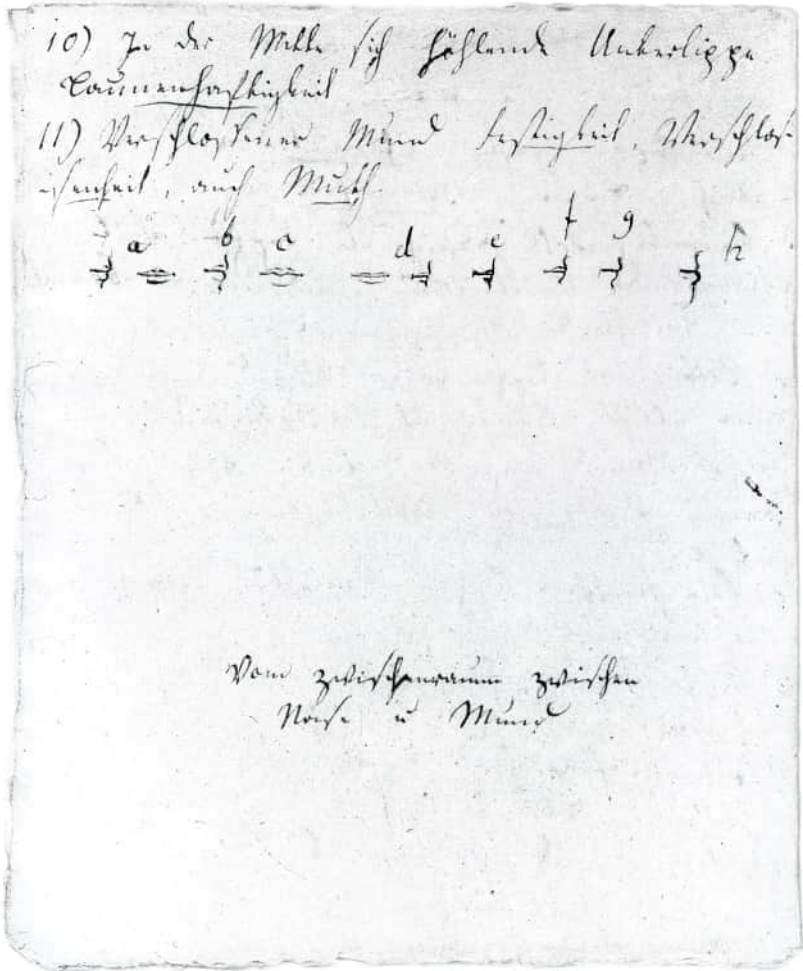 10) In der Mitte sich höhlende Unterlippe
Launenhaftigkeit
11) Verschlossener Mund Festigkeit, Verschlos-
senheit, auch Muth.
a b c d e f g h
Vom Zwischenraum zwischen
Nase u Mund